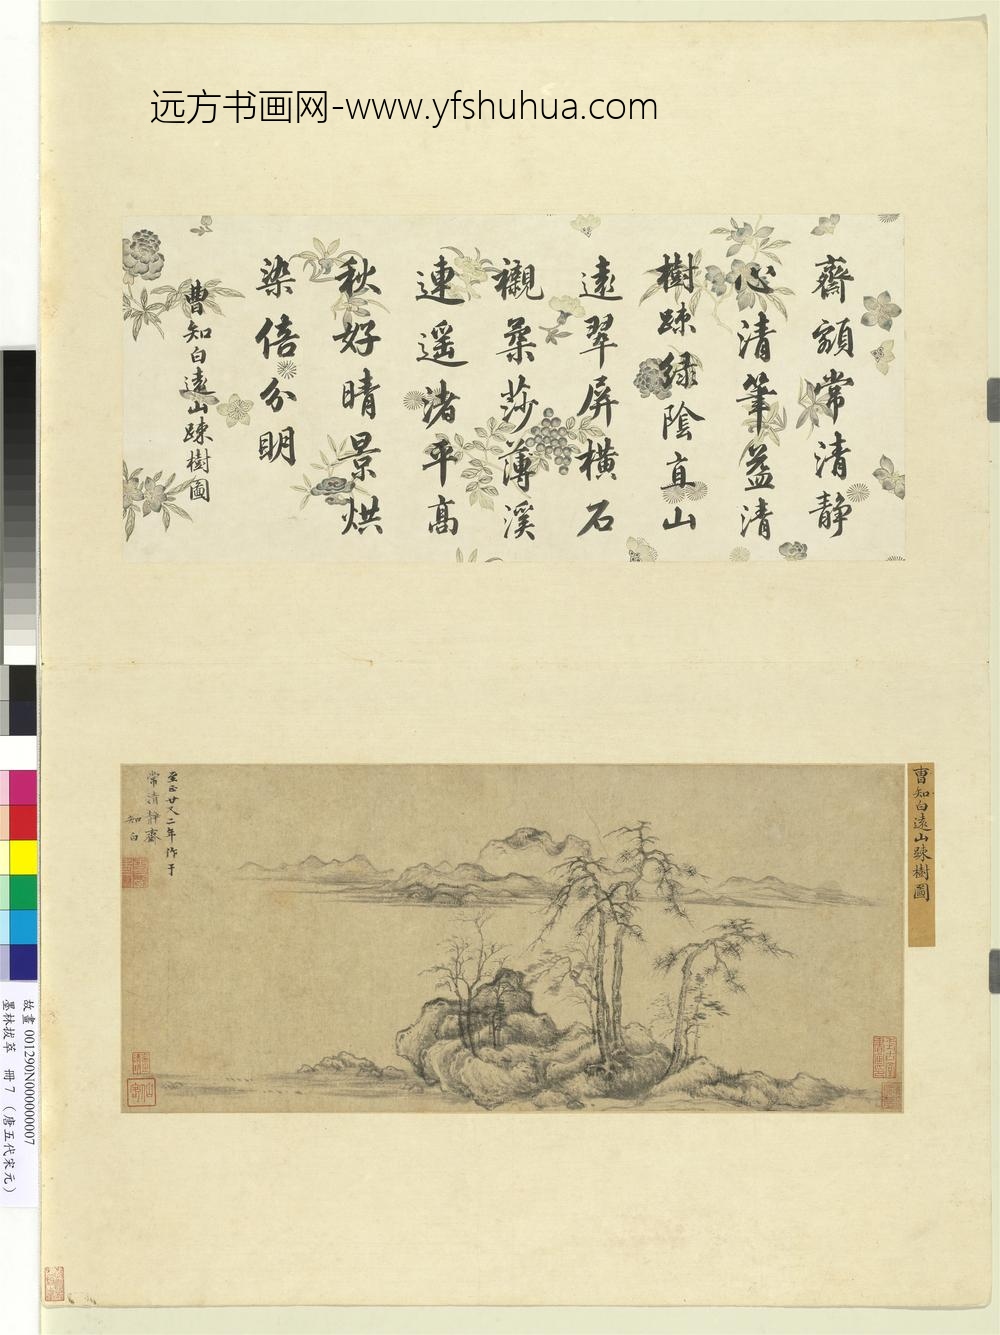 远方书画网-www.yfshuhua.com
齋額常清静
心清筆益清
樹疎綠陰直山
遠翠屏橫石
襯葉莎薄溪
連遥渚平髙
秋好晴景烘
染倍分明
曹知白遠山疎樹圖
曹知白遠山疎樹圖
至正廿又二年作于
常清静齋
知白
故畫 001290N000000007
墨林拔萃 冊7 (唐五代宋元)